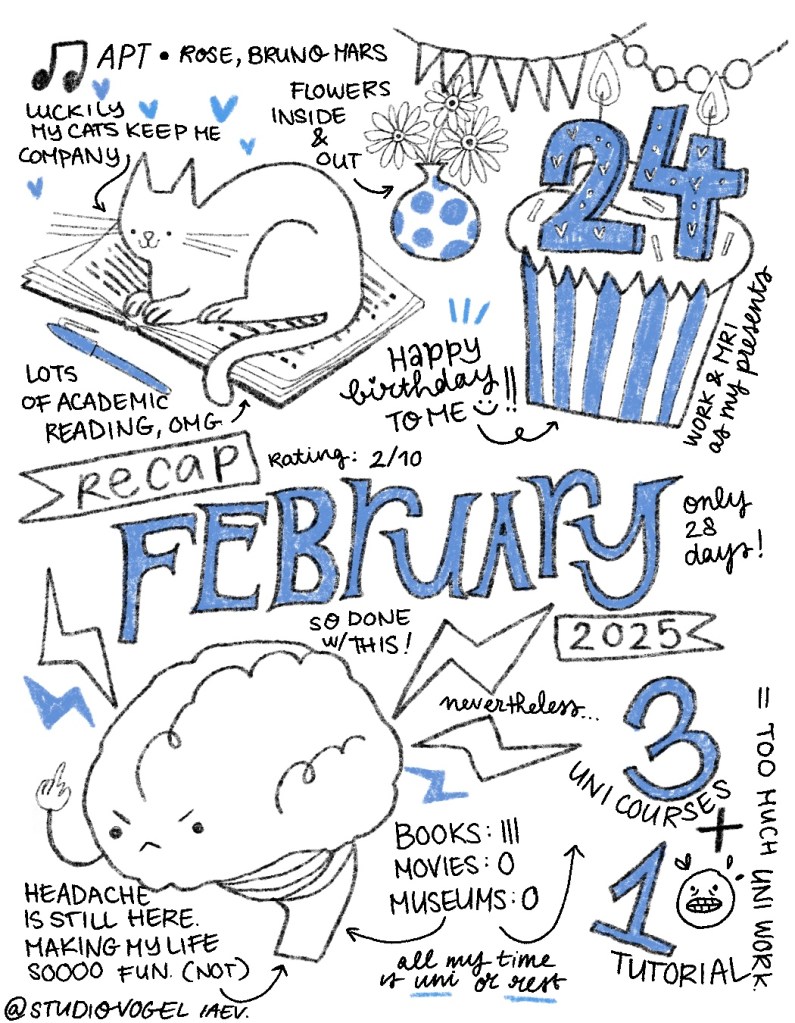 APT • ROSE, BRUNO MARS
LUCKILY
MY CATS KEEP ME
COMPANY
FLOWERS
INSIDE
&
OUT
24
LOTS
OF ACADEMIC
READING, OMG
HAPPY
birthday
TO ME !!
WORK & MRI
as my presents
RECAP
Rating: 2/10
FEBRUARY
only
28
days!
2025
SO DONE
W/ THIS!
nevertheless...
3
UNI COURSES
+
1
TUTORIAL
= TOO MUCH UNI WORK.
BOOKS: III
MOVIES: 0
MUSEUMS: 0
all my time
is uni or rest
HEADACHE
IS STILL HERE.
MAKING MY LIFE
SOOOO FUN. (NOT)
@STUDIOVOGEL